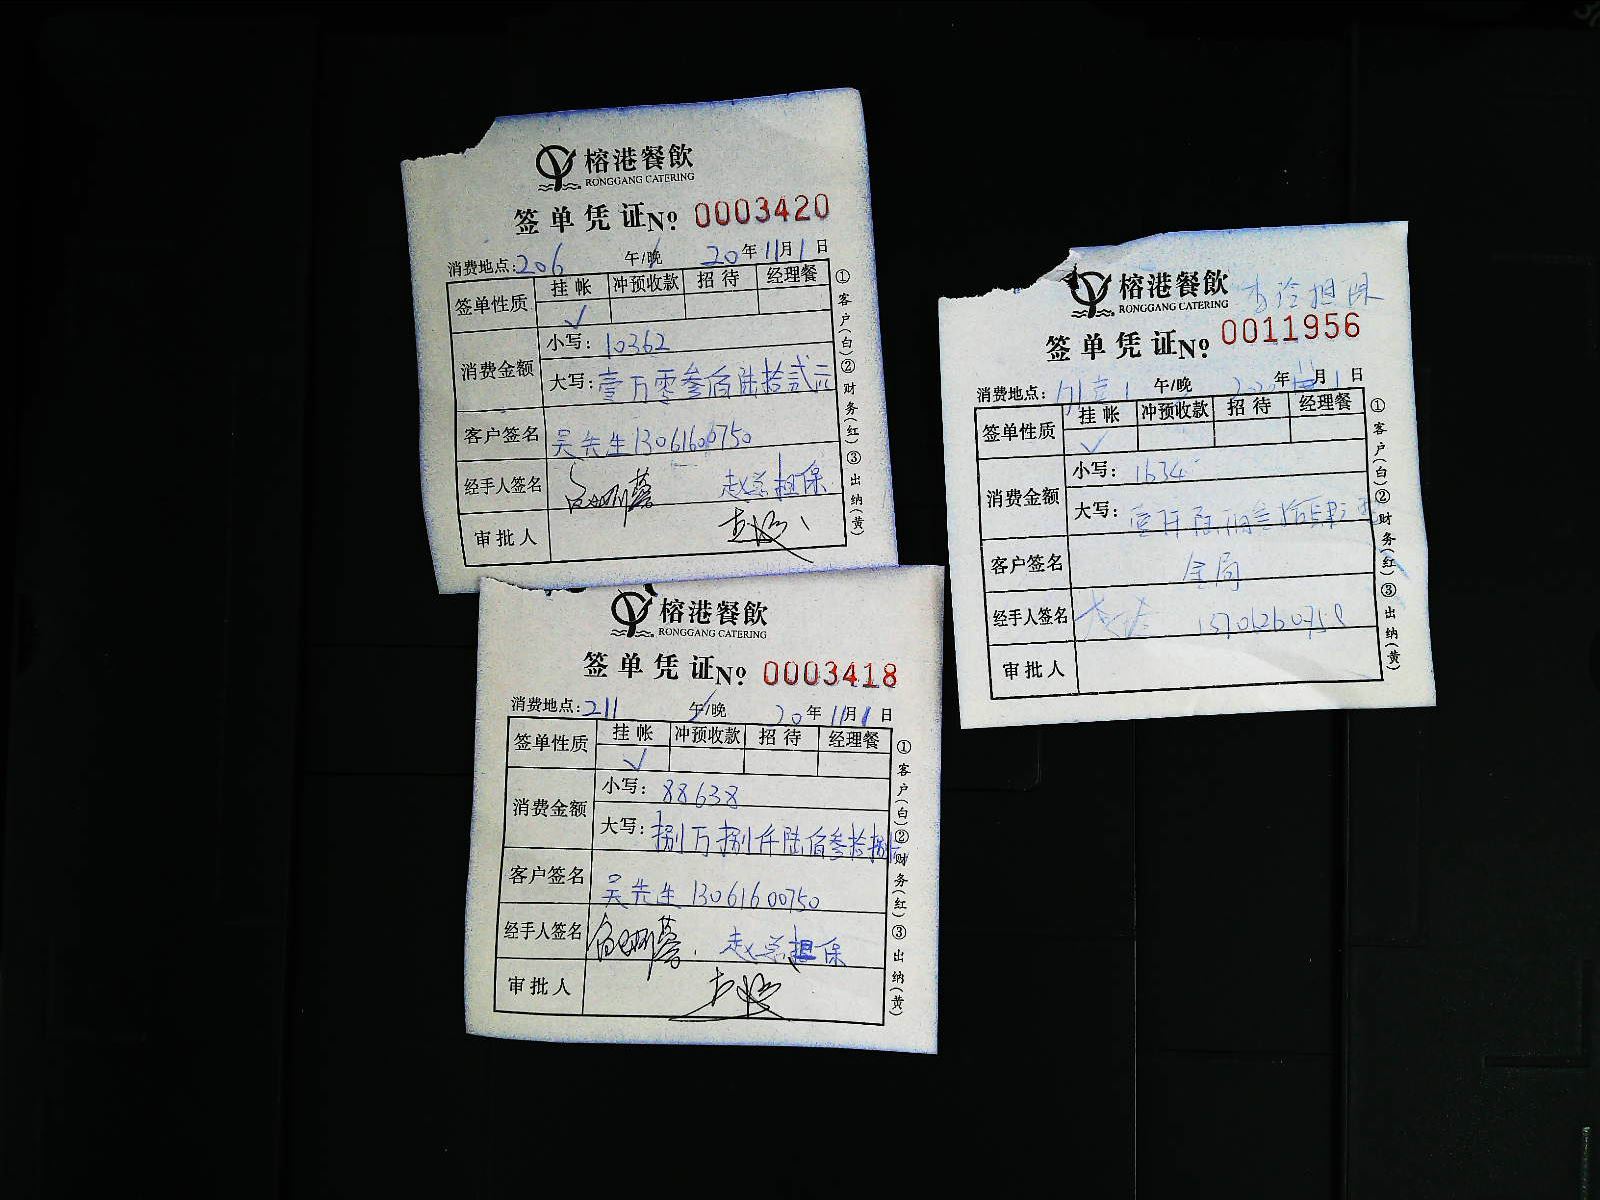 榕港餐飲
RONGGANG CATERING
签单凭证№ 0003420
消费地点:206 午/晚 20年11月1日
签单性质 挂帐 冲预收款 招待 经理餐
✓
消费金额 小写: 10362
大写: 壹万零叁佰陆拾贰元
客户签名 吴先生 13061600750
经手人签名 赵总担保
审批人
①客户(白)②财务(红)③出纳(黄)
榕港餐飲
RONGGANG CATERING
签单凭证№ 0003418
消费地点:211 午/晚 20年11月1日
签单性质 挂帐 冲预收款 招待 经理餐
✓
消费金额 小写: 88638
大写: 捌万捌仟陆佰叁拾捌元
客户签名 吴先生 13061600750
经手人签名 赵总担保
审批人
①客户(白)②财务(红)③出纳(黄)
榕港餐飲 担保
RONGGANG CATERING
签单凭证№ 0011956
消费地点: 午/晚 年 月1日
签单性质 挂帐 冲预收款 招待 经理餐
✓
消费金额 小写: 1634
大写: 壹仟陆佰叁拾肆元
客户签名 金局
经手人签名
审批人
①客户(白)②财务(红)③出纳(黄)